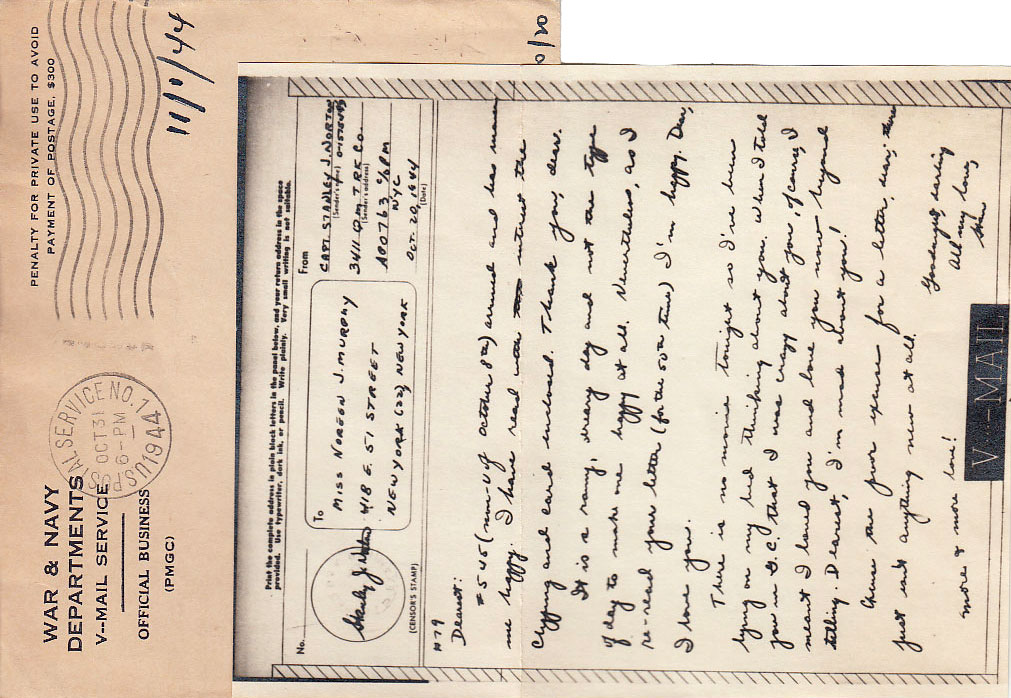 WAR & NAVY
DEPARTMENTS
V--MAIL SERVICE
OFFICIAL BUSINESS
(PMGC)
U.S. POSTAL SERVICE NO. 1
OCT 31
6-PM
1944
PENALTY FOR PRIVATE USE TO AVOID
PAYMENT OF POSTAGE, $300
11/10/44
0/20
Print the complete address in plain block letters in the panel below, and your return address in the space
provided. Use typewriter, dark ink, or pencil. Write plainly. Very small writing is not suitable.
No.
Stanley J. Norton
(CENSOR'S STAMP)
To
MISS NOREEN J. MURPHY
418 E. 51 STREET
NEW YORK (22) NEW YORK
From
CAPT. STANLEY J. NORTON
(Sender's name)
3411 QM TRK CO
(Sender's address)
APO 763 c/o PM
NYC
OCT. 20, 1944
(Date)
#79
Dearest:
#545 (non-V of October 8th) arrived and has made
me happy. I have read with interest the
clipping and card enclosed. Thank you, dear.
It is a rainy, dreary day and not the type
of day to make one happy at all. Nevertheless, as I
re-read your letter (for the 50th time) I'm happy. Dear,
I love you.
There is no movie tonight so I've been
lying on my bed thinking about you. When I told
you in D.C. that I was crazy about you, of course, I
meant I loved you and love you now beyond
telling. Dearest, I'm mad about you!
Excuse the poor excuse for a letter, dear, there
just isn't anything new at all.
Goodnight, darling
All my love,
Stan
more & more love!
V--MAIL